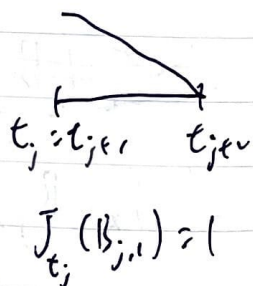 t_j = t_{j+1} t_{j+2}
J_{t_j} (B_{j,1}) = 1